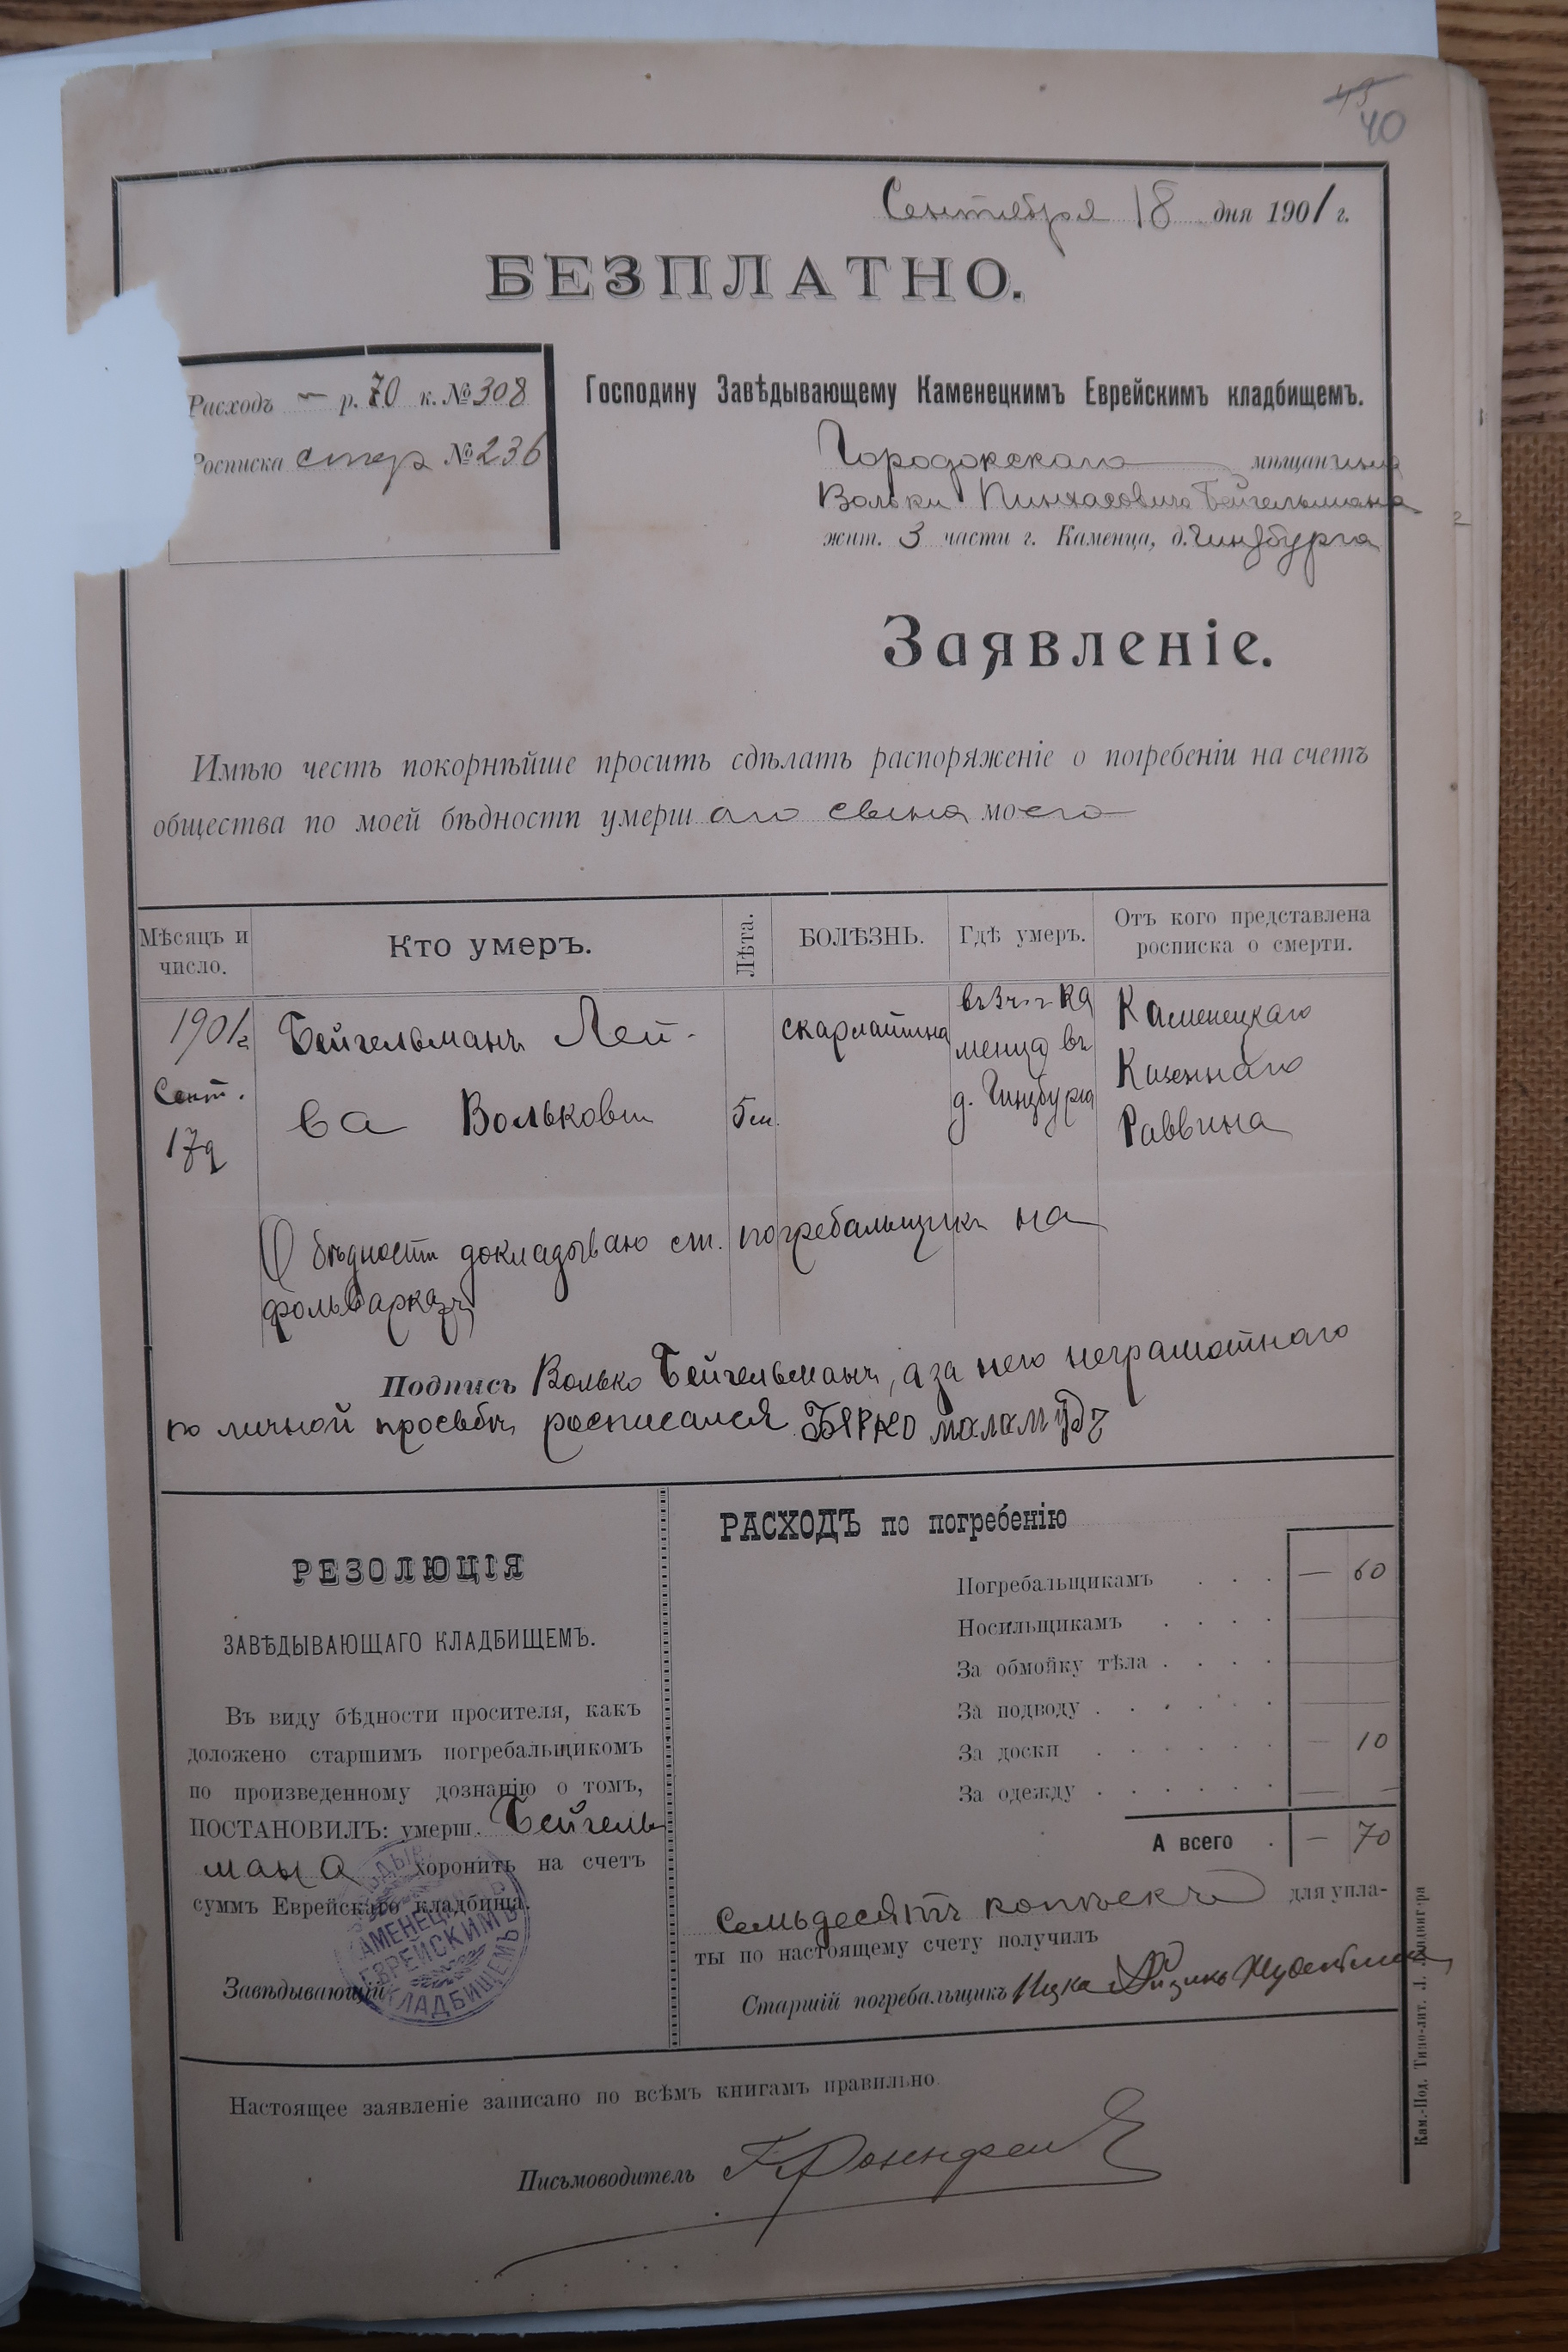 40
Сентября 18 дня 1901 г.
БЕЗПЛАТНО.
Расходъ — р. 70 к. № 308
Росписка стар № 236
Господину Завѣдывающему Каменецкимъ Еврейскимъ кладбищемъ.
Городокскаго мѣщанина
Вольки Пинхасовича Бейгельмана
жит. 3 части г. Каменца, д. Гинзбурга
Заявленіе.
Имѣю честь покорнѣйше просить сдѣлать распоряженіе о погребеніи на счетъ
общества по моей бѣдности умершаго сына моего
Мѣсяцъ и число.
Кто умеръ.
Лѣта.
БОЛѢЗНЬ.
Гдѣ умеръ.
Отъ кого представлена росписка о смерти.
1901 г. Сент. 17 д
Бейгельманъ Лей-
ба Волькови
5 м.
скарлатина
въ 3 ч. г. Ка
менца въ
д. Гинзбурга
Каменецкаго
Казеннаго
Раввина
О бѣдности докладываю ст. погребальщикъ на
фольваркахъ
Подпись Волько Бейгельманъ, а за него неграмотнаго
по личной просьбѣ росписался Бярко маламудъ
РЕЗОЛЮЦІЯ
ЗАВѢДЫВАЮЩАГО КЛАДБИЩЕМЪ.
Въ виду бѣдности просителя, какъ
доложено старшимъ погребальщикомъ
по произведенному дознанію о томъ,
ПОСТАНОВИЛЪ: умерш. Бейгель
мана хоронить на счетъ
суммъ Еврейскаго кладбища.
Завѣдывающій
КАМЕНЕЦКИМЪ ЕВРЕЙСКИМЪ КЛАДБИЩЕМЪ
РАСХОДЪ по погребенію
Погребальщикамъ . . . — 60
Носильщикамъ . . . .
За обмойку тѣла . . . .
За подводу . . . . .
За доски . . . . . . — 10
За одежду . . . . . . — —
А всего . — 70
Семьдесятъ копѣекъ для упла-
ты по настоящему счету получилъ
Старшій погребальщикъ Ицка Айзикъ
Настоящее заявленіе записано по всѣмъ книгамъ правильно
Письмоводитель
Кам.-Под. Типо-лит. Л.